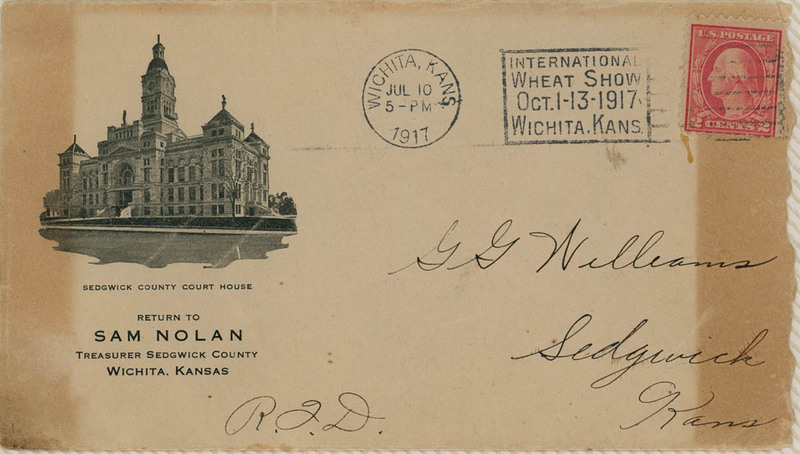 WICHITA, KANS.
JUL 10
5-PM
1917
INTERNATIONAL
WHEAT SHOW
OCT.1-13-1917.
WICHITA.KANS.
U.S. POSTAGE
2 CENTS 2
SEDGWICK COUNTY COURT HOUSE
RETURN TO
SAM NOLAN
TREASURER SEDGWICK COUNTY
WICHITA, KANSAS
G G Williams
Sedgwick
Kans
R.F.D.